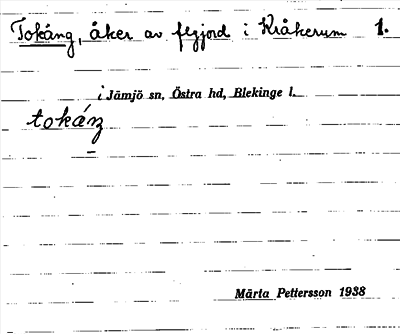 Tokång, åker av flyjord i Kråkerum 1.
i Jämjö sn, Östra hd, Blekinge l.
tokáŋ
Märta Pettersson 1938